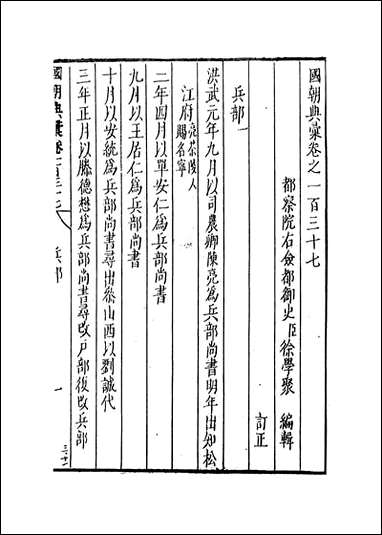 國朝典彙卷之一百三十七
都察院右僉都御史臣徐學聚 編輯
訂正
兵部一
洪武元年九月以司農卿陳亮為兵部尚書明年出知松
江府亮茶陵人賜名寧
二年四月以單安仁為兵部尚書
九月以王居仁為兵部尚書
十月以安統為兵部尚書尋出參山西以劉誠代
三年正月以滕德懋為兵部尚書尋改戶部復改兵部
國朝典彙卷一百三十七 兵部 一